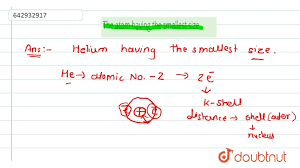 642932917
The atom having the smallest size
Ans:- Helium having the smallest size.
He → atomic No. - 2 → 2e⁻
↓
K-shell
distance → shell (outer)
↓
nucleus
doubtnut